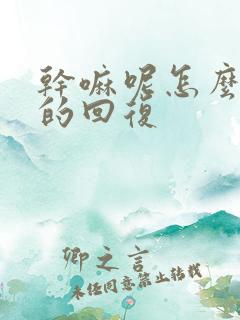 幹嘛呢怎麼
的回復
卿之言
未任同意禁止转载